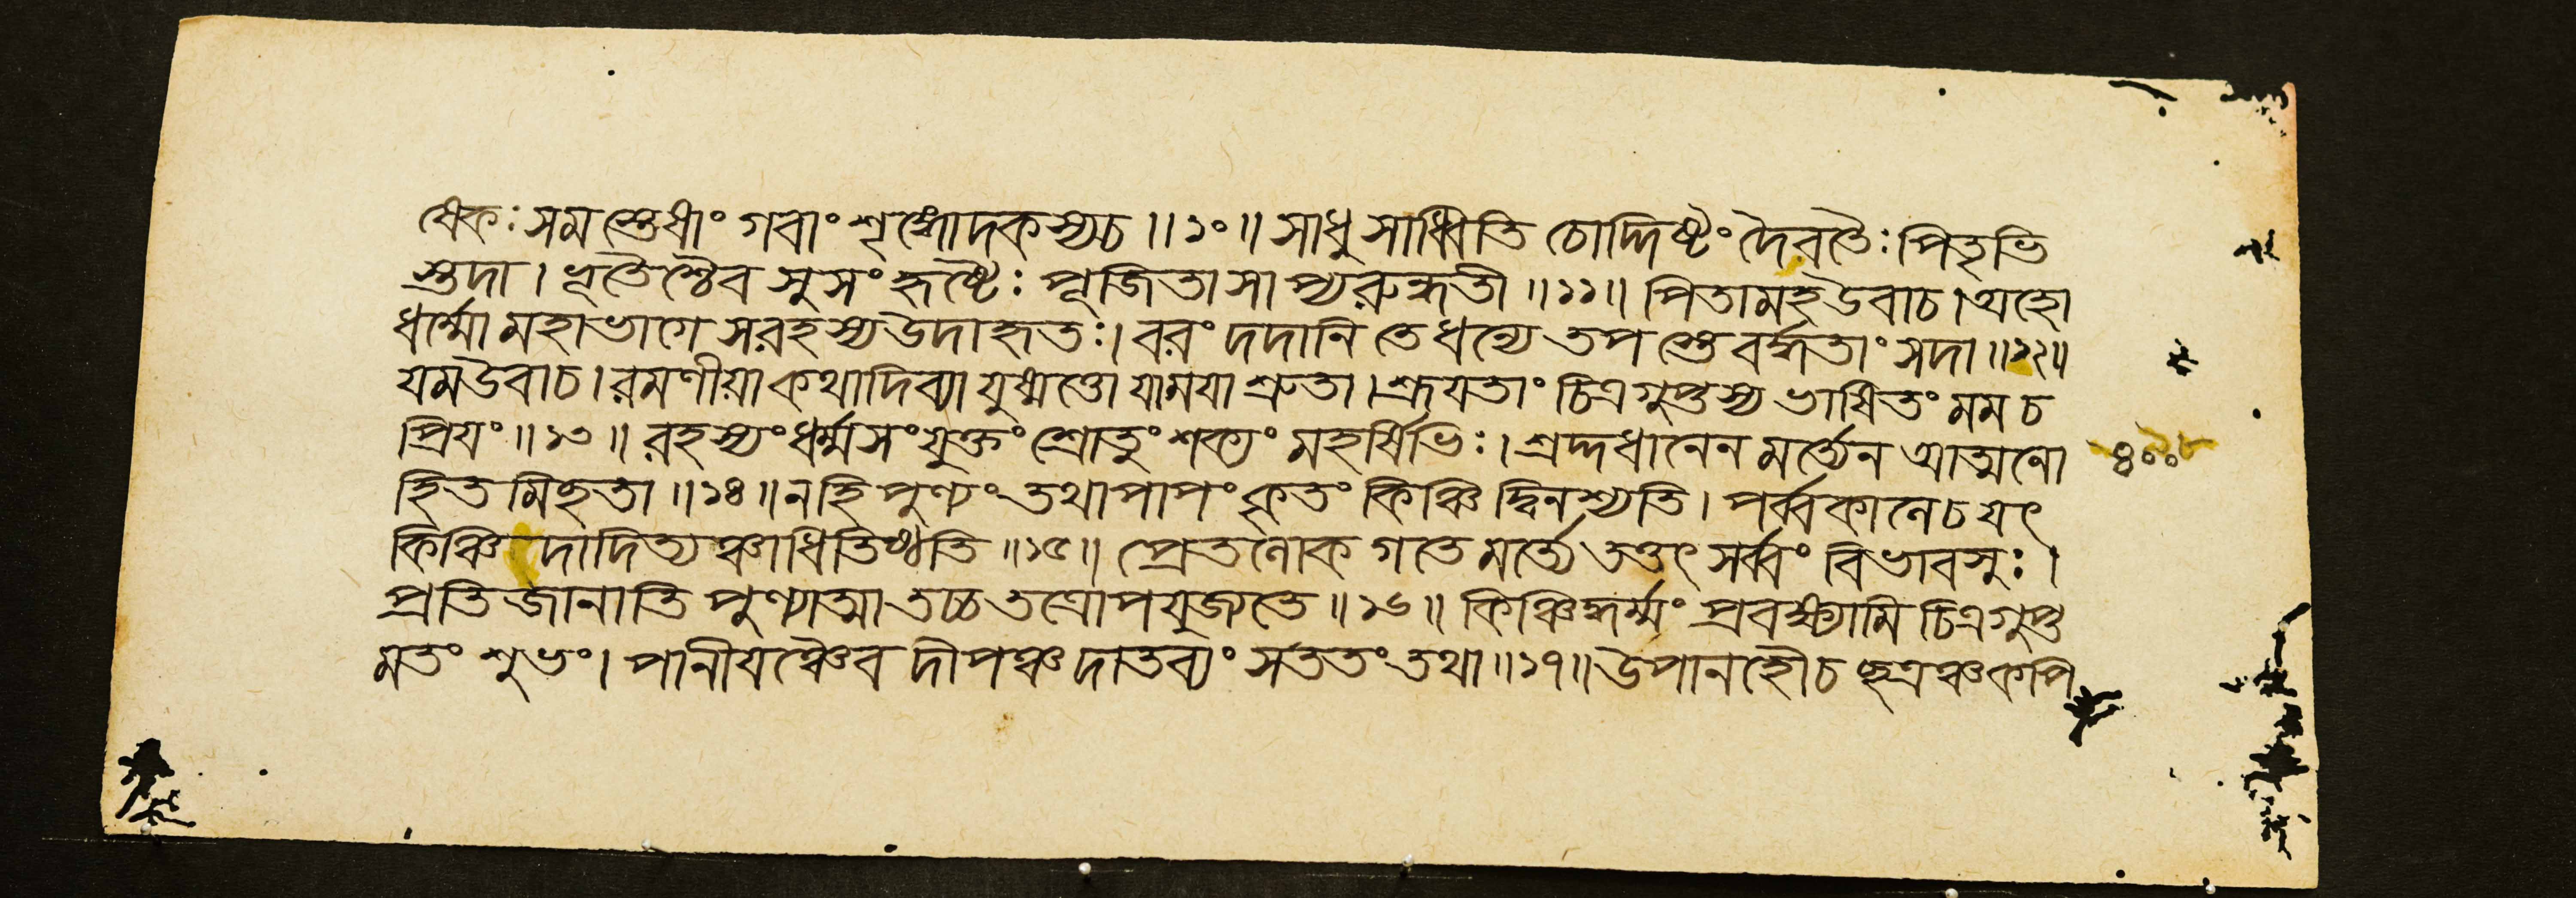 ষেকঃ সমস্তেষাং গবাং শৃঙ্গোদকস্য চ ॥ ১০ ॥ সাধু সাধ্বিতি চোদ্দিষ্টং দৈৱতৈঃ পিতৃভি
স্তদা । ভূতৈশ্চৈব সুসংহৃষ্টৈঃ পূজিতা সাপ্যৰুন্ধতী ॥ ১১ ॥ পিতামহ উবাচ । অহো
ধর্ম্মো মহাভাগে সৰহস্য উদাহৃতঃ । বৰং দদানি তে ধন্যে তপস্তে বর্দ্ধতাং সদা ॥ ১২ ॥
যম উবাচ । ৰমণীয়া কথা দিব্যা যুষ্মত্তো যা ময়া শ্রুতা । শ্রূযতাং চিত্রগুপ্তস্য ভাষিতং মম চ
প্রিযং ॥ ১৩ ॥ ৰহস্যং ধর্ম্মসংযুক্তং শ্রোতুং শক্যং মহর্ষিভিঃ । শ্রদ্দধানেন মর্ত্ত্যেন আত্মনো
হিতমিহতা ॥ ১৪ ॥ ন হি পুণ্যং তথা পাপং কৃতং কিঞ্চিদ্বিনশ্যতি । পর্ব্বকালে চ যৎ
কিঞ্চিদাদিত্যঞ্চাধিতিষ্ঠতি ॥ ১৫ ॥ প্রেতলোকগতে মর্ত্ত্যে তত্তৎ সর্ব্বং বিভাবসুঃ ।
প্রতিজানাতি পুণ্যাত্মা তচ্চ তত্রোপযুজ্যতে ॥ ১৬ ॥ কিঞ্চিদ্ধর্ম্মং প্রবক্ষ্যামি চিত্রগুপ্ত
মতং শুভং । পানীযঞ্চৈব দীপঞ্চ দাতব্যং সততং তথা ॥ ১৭ ॥ উপানহৌ চ ছত্রঞ্চ কপি
৪০০